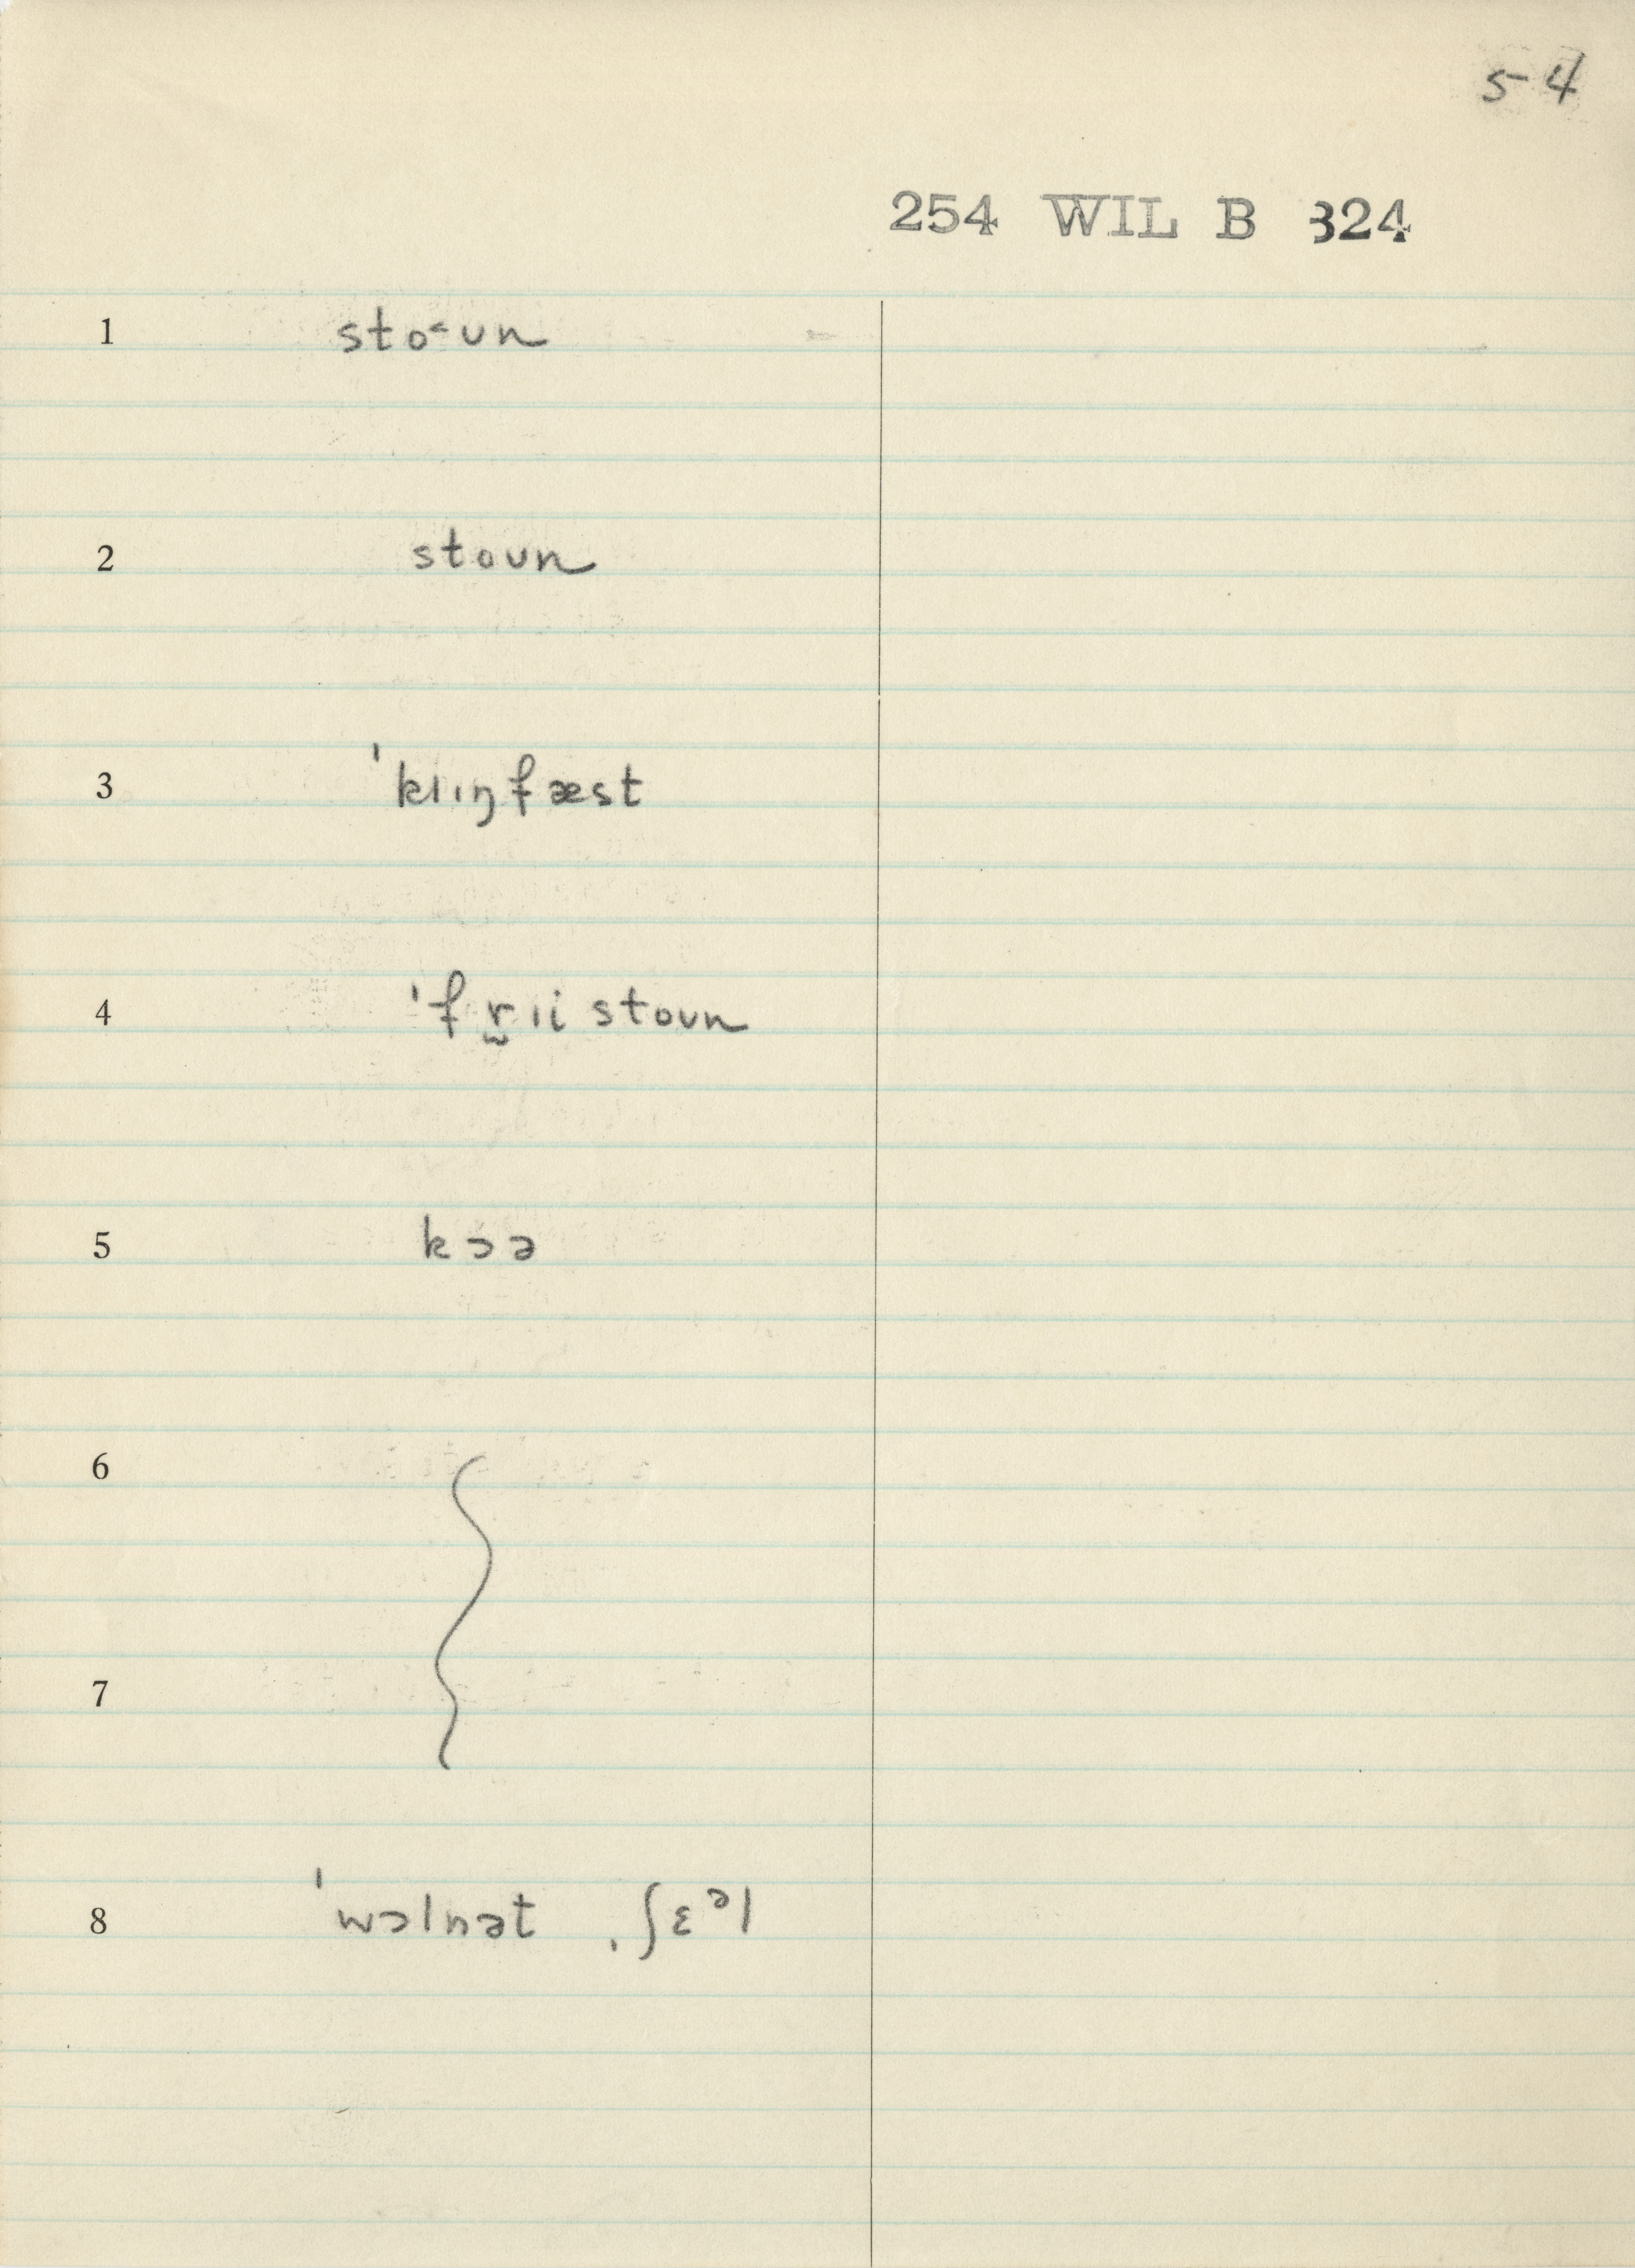 54
254 WIL B 324
1 sto˂ʊn
2 stoʊn
3 ˈklɪŋfæst
4 ˈfr̬ɪistoʊn
5 kɔə
6
7
8 ˈwɔlnət ˌʃɛᵊl